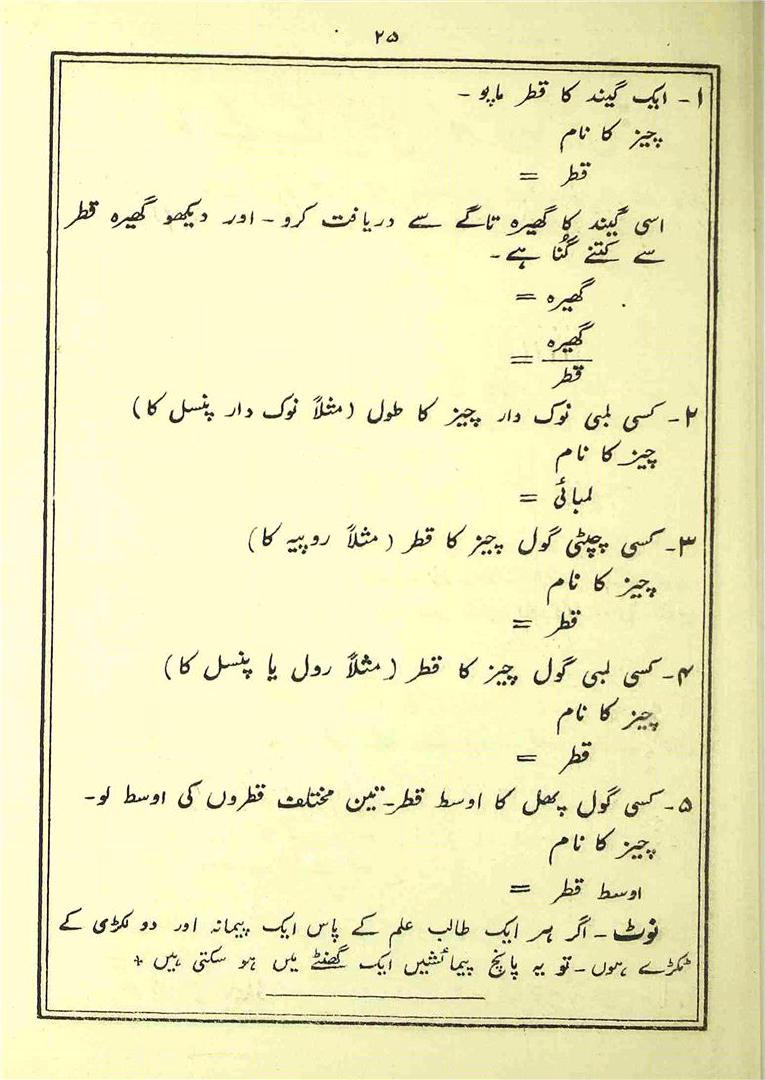 ۲۵
۱ - ایک گیند کا قطر ماپو -
چیز کا نام
قطر =
اسی گیند کا گھیرہ تاگے سے دریافت کرو - اور دیکھو گھیرہ قطر
سے کتنے گُنا ہے -
گھیرہ =
گھیرہ
قطر =
۲ - کسی لمبی نوک دار چیز کا طول (مثلاً نوک دار پنسل کا)
چیز کا نام
لمبائی =
۳ - کسی چپٹی گول چیز کا قطر (مثلاً روپیہ کا)
چیز کا نام
قطر =
۴ - کسی لمبی گول چیز کا قطر (مثلاً رول یا پنسل کا)
چیز کا نام
قطر =
۵ - کسی گول پھل کا اوسط قطر - تین مختلف قطروں کی اوسط لو -
چیز کا نام
اوسط قطر =
نوٹ - اگر ہر ایک طالب علم کے پاس ایک پیمانہ اور دو لکڑی کے
ٹکڑے ہوں - تو یہ پانچ پیمائشیں ایک گھنٹے میں ہو سکتی ہیں +